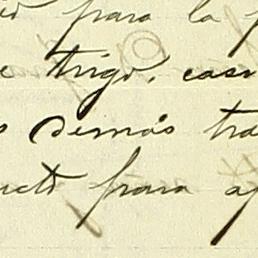 para la
trigo, casi
demás tra
para